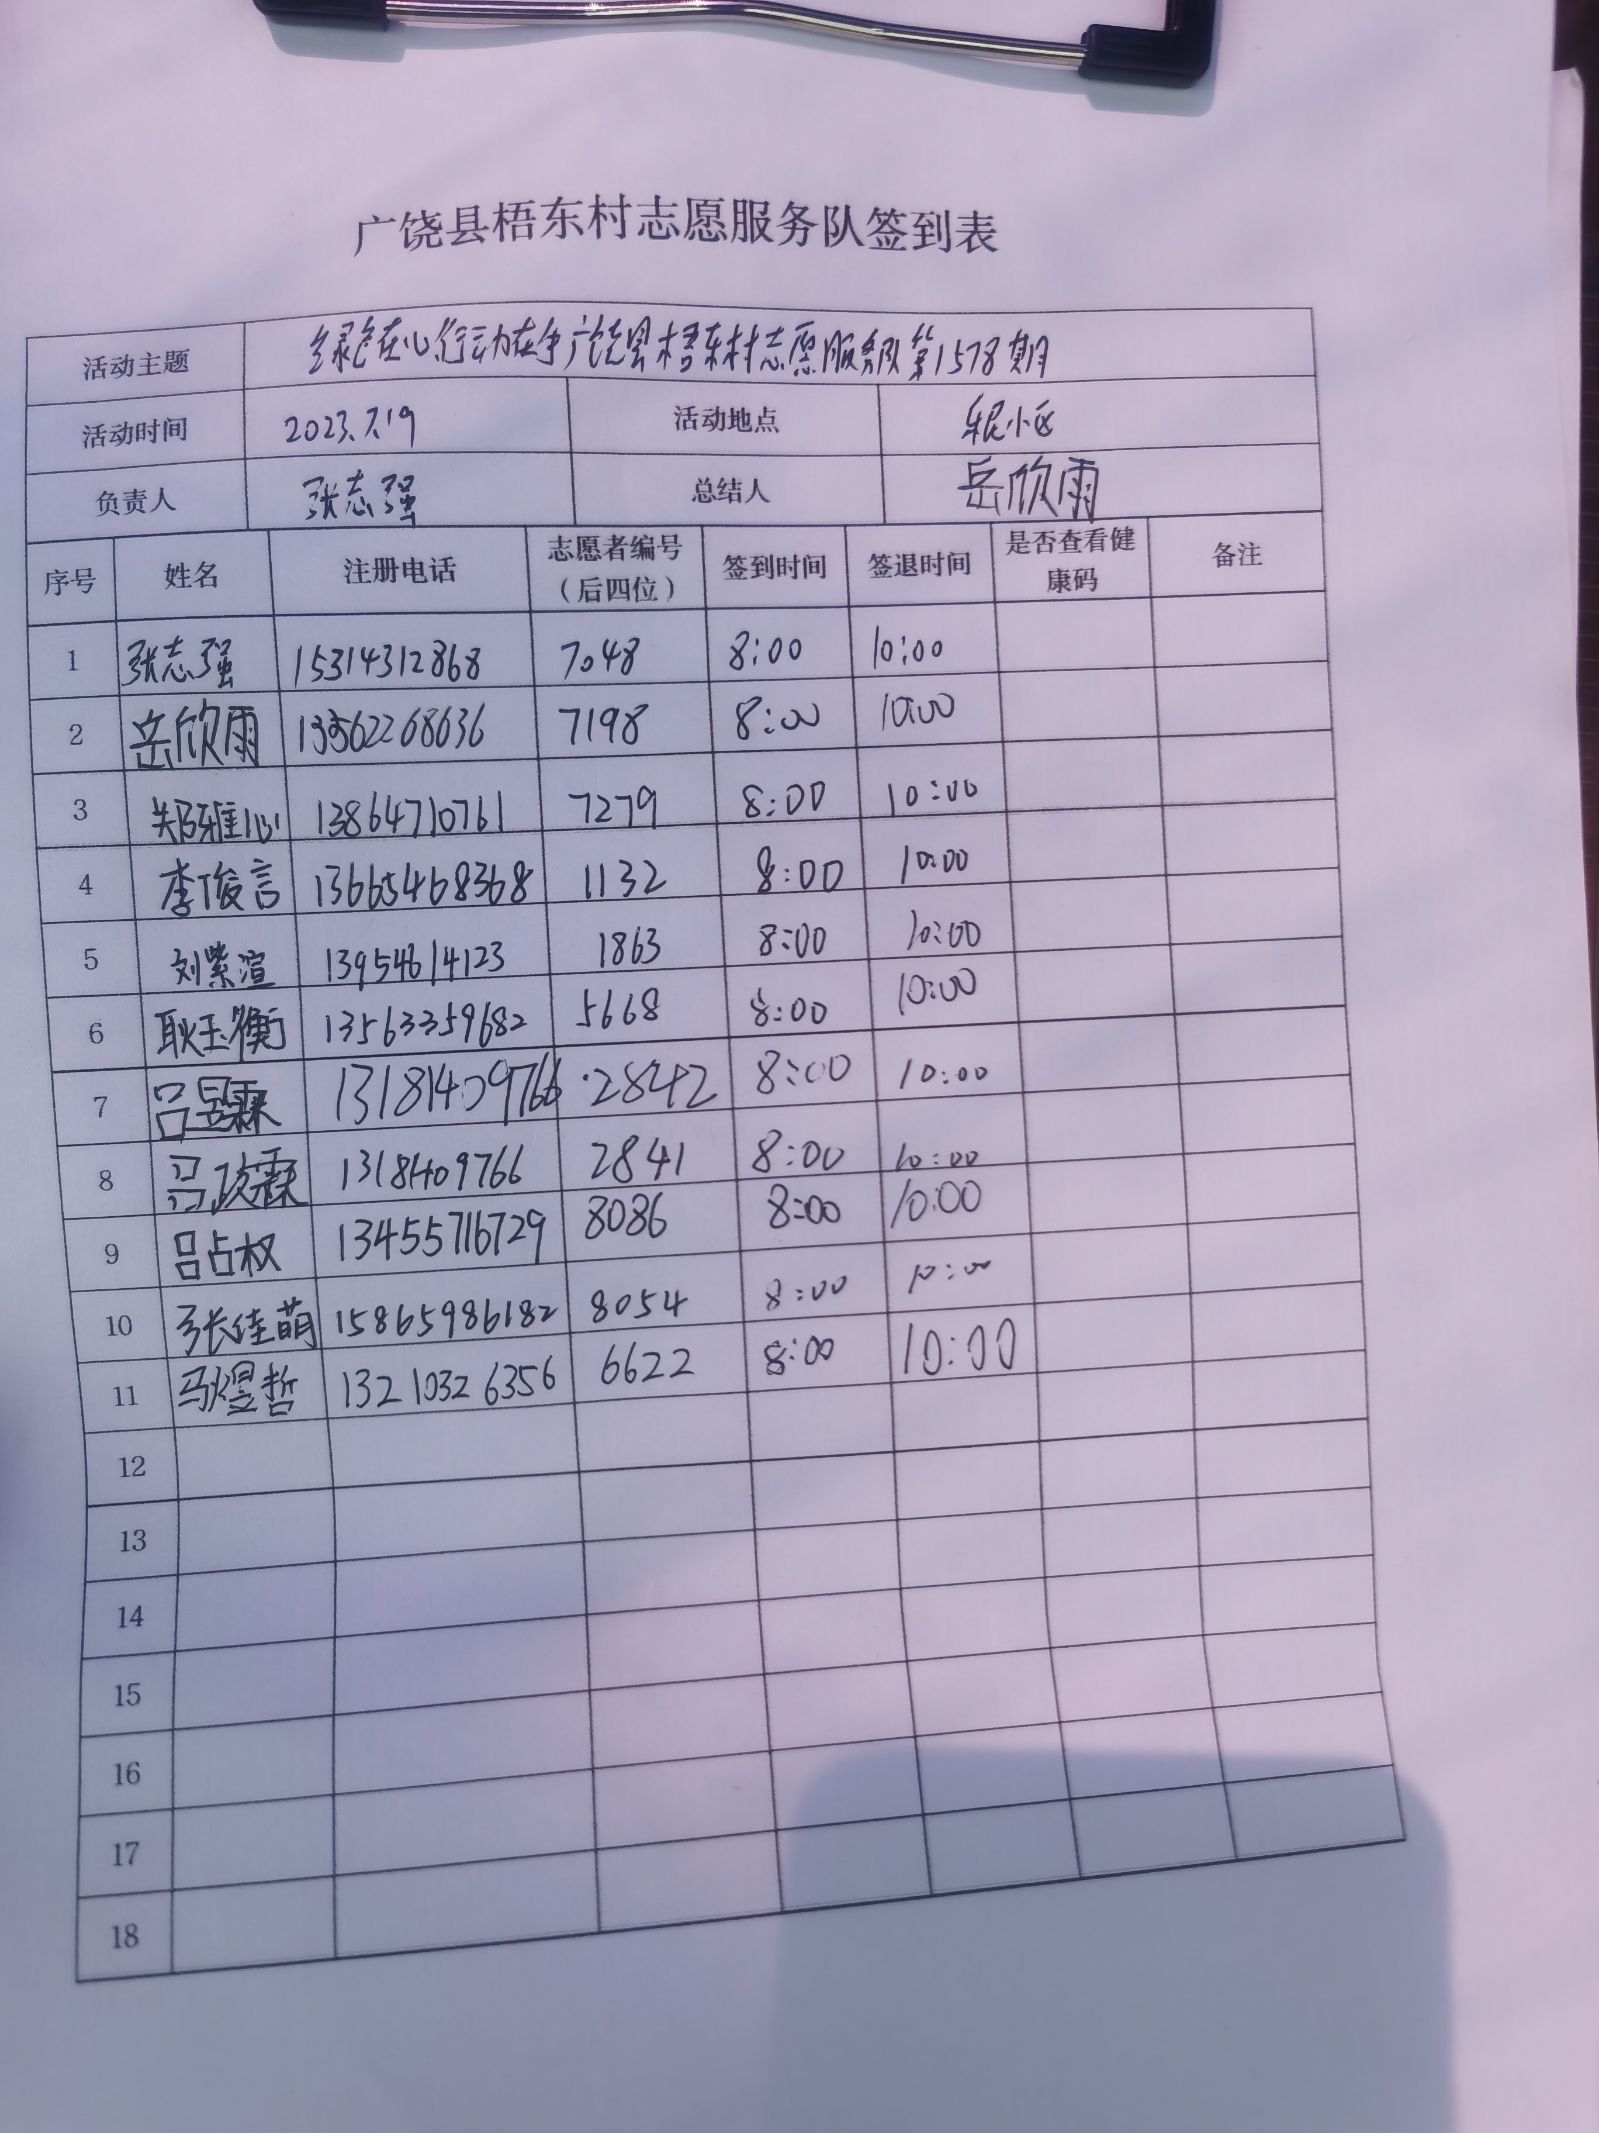 广饶县梧东村志愿服务队签到表
活动主题 绿色在心行动在手广饶县梧东村志愿服务队第1578期
活动时间 2023.7.19 活动地点 小区
负责人 张志强 总结人 岳欣雨
序号 姓名 注册电话 志愿者编号（后四位） 签到时间 签退时间 是否查看健康码 备注
1 张志强 15314312868 7048 8:00 10:00
2 岳欣雨 13562268636 7198 8:00 10:00
3 郑雅心 13864710761 7279 8:00 10:00
4 李俊言 13665468368 1132 8:00 10:00
5 刘紫渲 13954614123 1863 8:00 10:00
6 耿玉衡 13563359682 5668 8:00 10:00
7 吕昱霖 13181409766 2842 8:00 10:00
8 吕政霖 13181409766 2841 8:00 10:00
9 吕占权 13455716729 8086 8:00 10:00
10 张佳萌 15865986182 8054 8:00 10:00
11 马煜哲 13210326356 6622 8:00 10:00
12
13
14
15
16
17
18